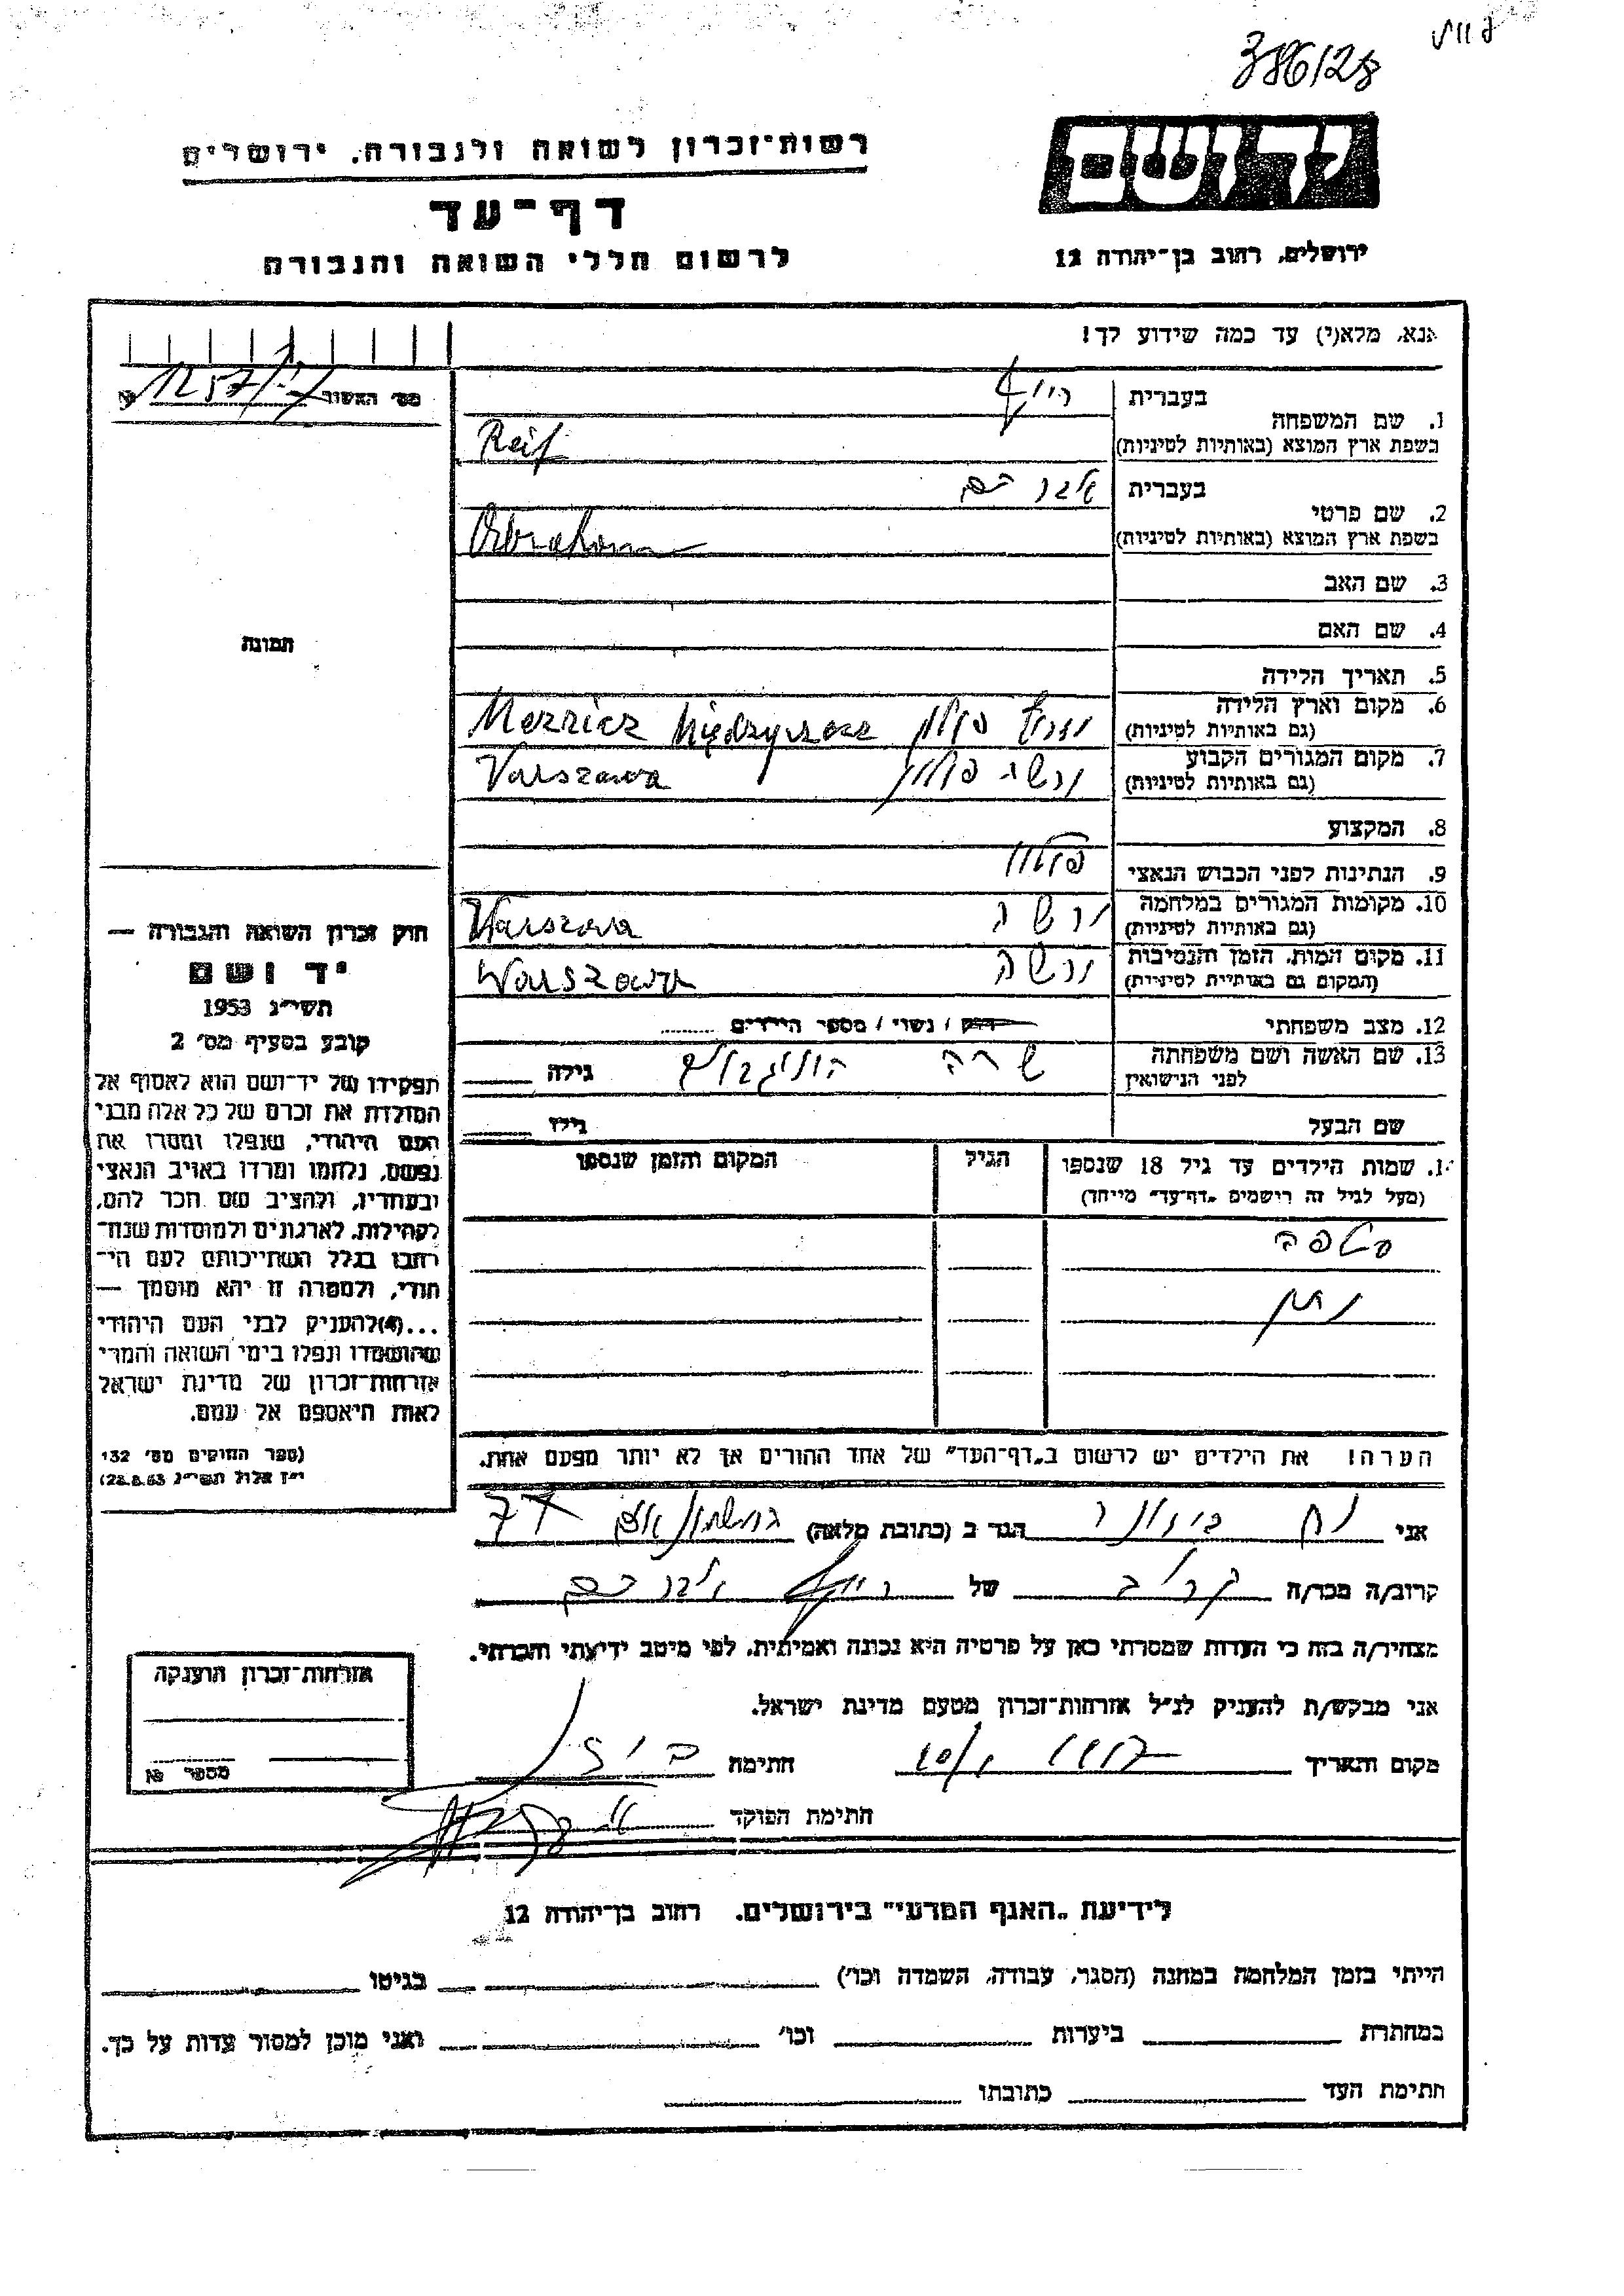 386/28
רשות־זכרון לשואה ולגבורה, ירושלים
יד ושם
דף־עד
לרשום חללי השואה והגבורה
ירושלים, רחוב בן־יהודה 12
אנא, מלא(י) עד כמה שידוע לך!
מס׳ האשור №
1. שם המשפחה
בעברית רייף
בשפת ארץ המוצא (באותיות לטיניות) Reif
2. שם פרטי
בעברית אברהם
בשפת ארץ המוצא (באותיות לטיניות) Abraham
3. שם האב
4. שם האם
5. תאריך הלידה
6. מקום וארץ הלידה
(גם באותיות לטיניות) פולין Mezricz
7. מקום המגורים הקבוע
(גם באותיות לטיניות) ורשה פולין Varszawa
8. המקצוע
9. הנתינות לפני הכבוש הנאצי פולין
10. מקומות המגורים במלחמה
(גם באותיות לטיניות) ורשה Warszawa
11. מקום המות, הזמן והנסיבות
(המקום גם באותיות לטיניות) ורשה Warszawa
12. מצב משפחתי רוק / נשוי / מספר הילדים
13. שם האשה ושם משפחתה
לפני הנישואין שרה גילה
שם הבעל גילו
14. שמות הילדים עד גיל 18 שנספו
(מעל לגיל זה רישמים „דף־עד״ מייחד)
הגיל
המקום והזמן שנספו
נתן
הערה! את הילדים יש לרשום ב„דף־העד״ של אחד ההורים אך לא יותר מפעם אחת.
תמונה
חוק זכרון השואה והגבורה —
יד ושם
תשי״ג 1953
קובע בסעיף מס׳ 2
תפקידו של יד־ושם הוא לאסוף אל
המולדת את זכרם של כל אלה מבני
העם היהודי, שנפלו ומסרו את
נפשם, נלחמו ומרדו באויב הנאצי
ובעוזריו, ולהציב שם וזכר להם,
לקהילות, לארגונים ולמוסדות שנח־
רבו בגלל השתייכותם לעם הי־
הודי, ולמטרה זו יהא מוסמך —
...(4) להעניק לבני העם היהודי
שהושמדו ונפלו בימי השואה והמרי
אזרחות־זכרון של מדינת ישראל
לאות היאספם אל עמם.
(ספר החוקים מס׳ 132
י״ז אלול תשי״ג 28.8.53)
אני נח הגר ב (כתובת מלאה)
קרוב/ה מכר/ה קרוב של רייף אברהם
מצהיר/ה בזה כי העדות שמסרתי כאן על פרטיה היא נכונה ואמיתית, לפי מיטב ידיעתי והכרתי.
אני מבקש/ת להעניק לנ״ל אזרחות־זכרון מטעם מדינת ישראל.
מקום והתאריך חתימה
חתימת הפוקד
אזרחות־זכרון הוענקה
מספר №
לידיעת „האגף המדעי״ בירושלים, רחוב בן־יהודה 12
הייתי בזמן המלחמה במחנה (הסגר, עבודה, השמדה וכו׳) בגיטו
במחתרת ביערות וכו׳ ואני מוכן למסור עדות על כך.
חתימת העד כתובתו